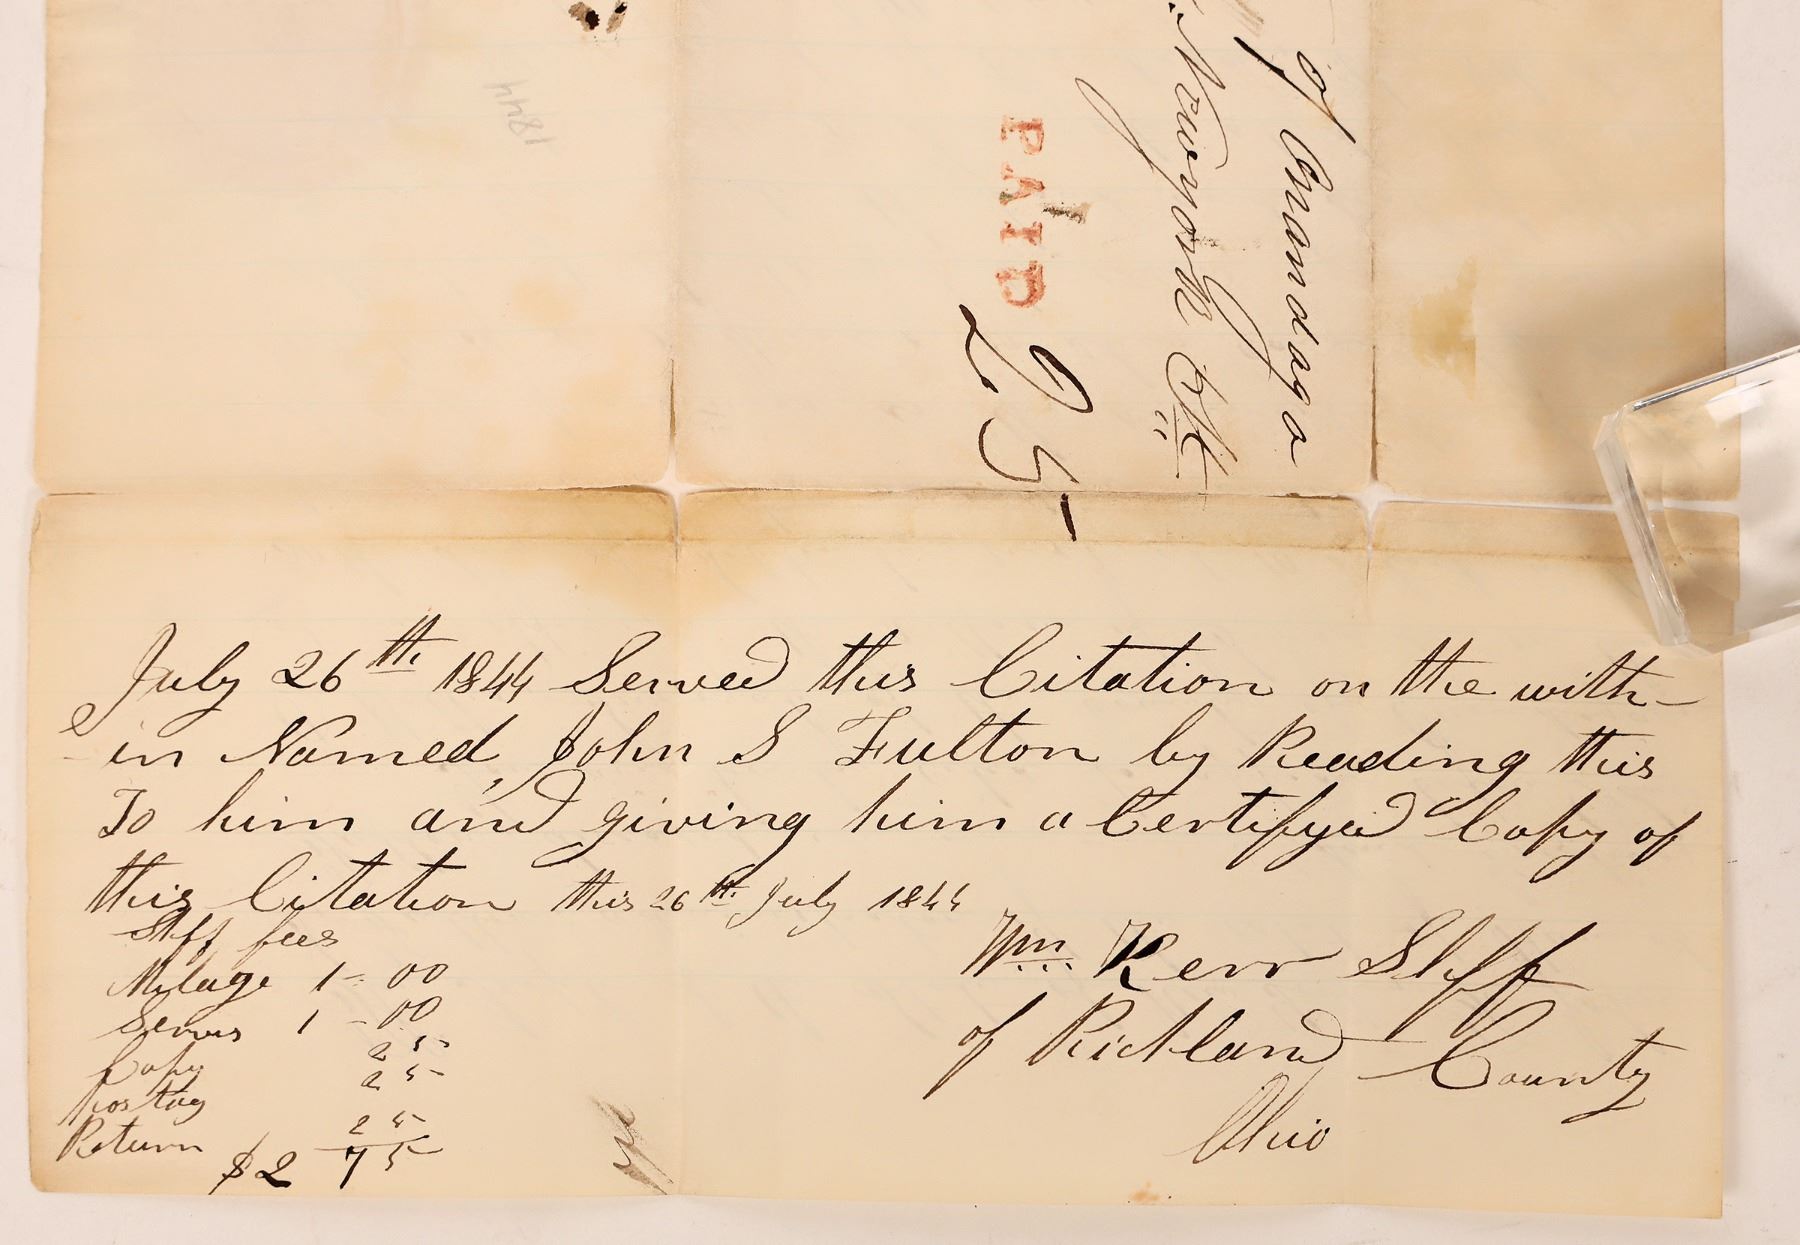 1844
of Onondago
Newyork
PAID
25
July 26th 1844 Served this Citation on the with-
in Named, John S Fulton by Reading this
To him and giving him a Certifyed Copy of
this Citation this 26th July 1844
Shff fees
Milage 1-00
Serves 1-00
Copy 25
Postag 25
Return 25
$2 75
Wm Kerr Shff
of Richland County
Ohio